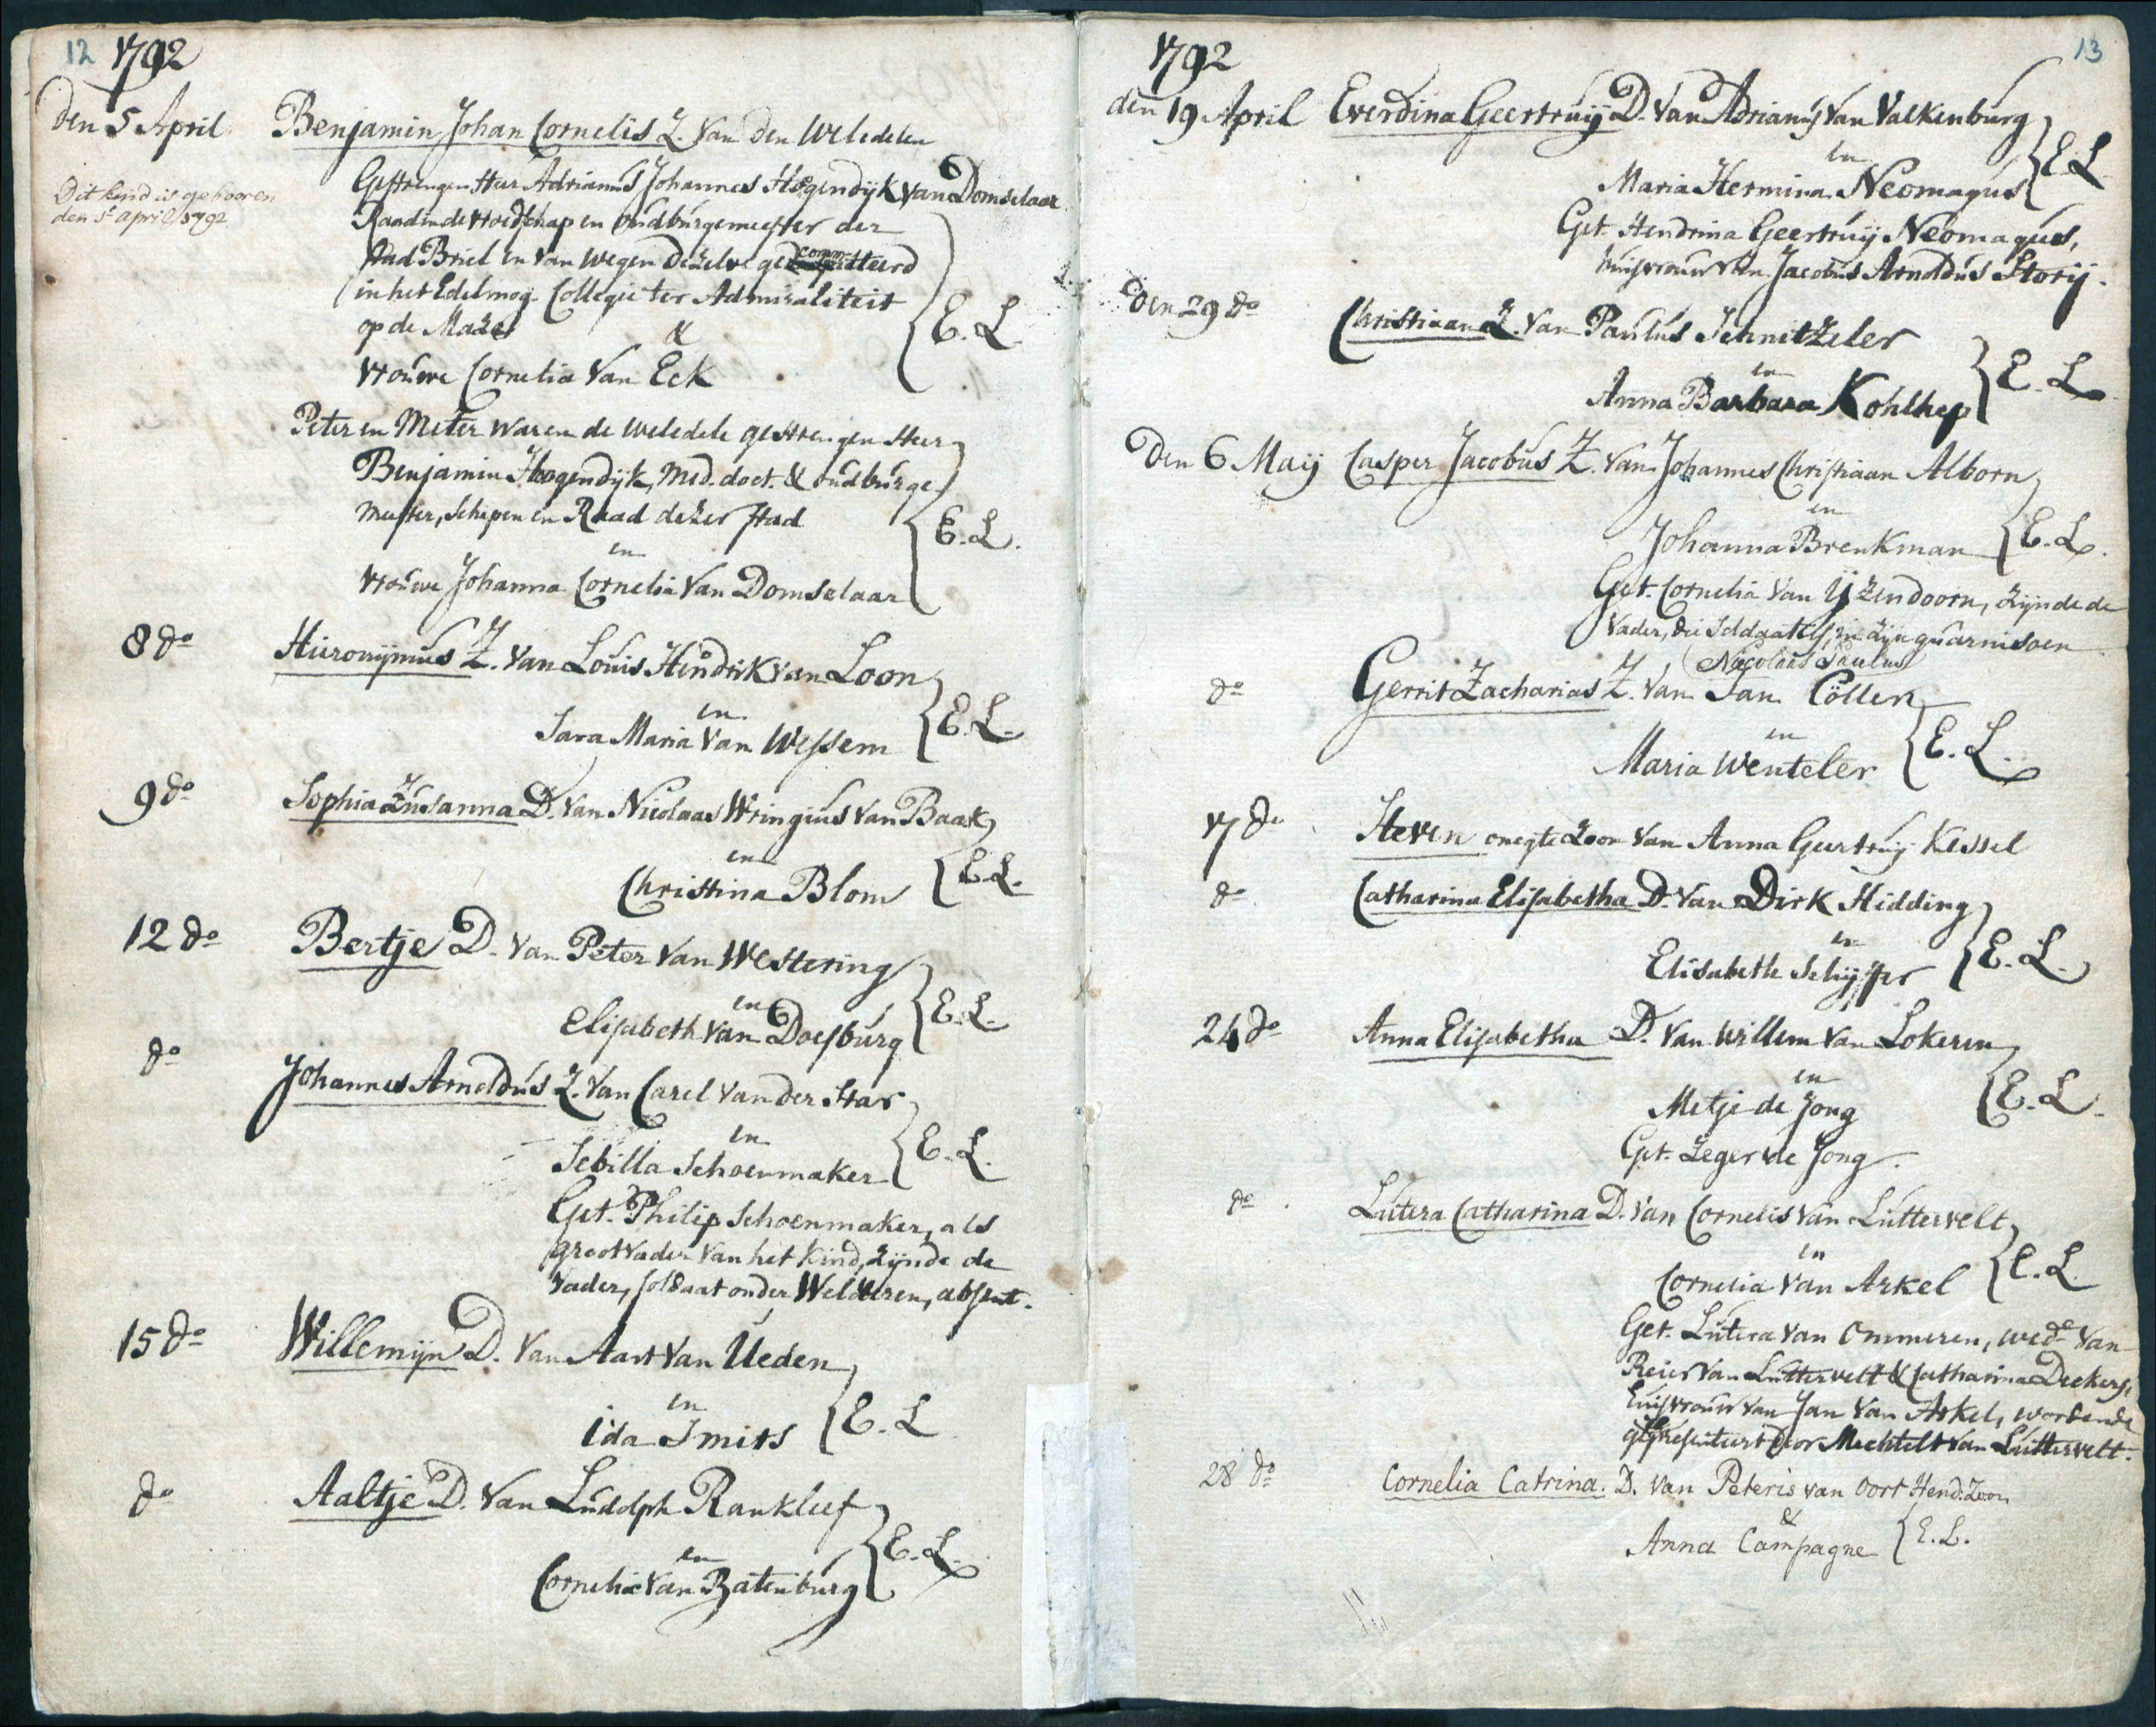 12 1792
Den 5 April Benjamin Johan Cornelis Z. van den Weledelen
Gestrengen Heer Adrianus Johannes Hogendijk van Domselaar
Dit kind is gebooren
den 5e April 1792
Raad in de Vroedschap en Oudburgemeester der
stad Briel en van wegen dezelve gecommitteerd
in het Edelmog. Collegie ter Admiraliteit
op de Maze
&
Vrouwe Cornelia van Eck
E. L.
Peter en Meter waren de weledele gestrengen Heer
Benjamin Hoogendijk, Med. doct. & oudburge-
meester, schepen en Raad dezer stad
en
E. L.
Vrouwe Johanna Cornelia van Domselaar
8 do Hieronijmus Z. van Louis Hendrik van Loon
en
Sara Maria van Wessem E. L.
9 do Sophia Zusanna D. van Nicolaas Wringius van Baak
en
Christina Blom E. L.
12 do Bertje D. van Peter van Westering
en
Elisabeth van Doesburg E. L.
do Johannes Arnoldus Z. van Carel van der Star
en
Sebilla Schoenmaker E. L.
Get. Philip Schoenmaker, als
grootvader van het kind, zijnde de
vader, soldaat onder Welderen, absent.
15 do Willemijn D. van Aart van Ueden
en
Ida Smits E. L.
do Aaltje D. van Ludolph Rankleef
en
Cornelia van Batenburg E. L.
13
1792
den 19 April Everdina Geertruij D. van Adrianus van Valkenburg
en
Maria Hermina Neomagus E. L.
Get. Hendrina Geertruij Neomagus,
huisvrouw van Jacobus Arnoldus Storij.
Den 29 do Christiaan Z. van Paulus Schnitzeler
en
Anna Barbara Kohlhep E. L.
Den 6 Maij Casper Jacobus Z. van Johannes Christiaan Alborn
en
Johanna Brenkman E. L.
Get. Cornelia van IJzendoorn, zijnde de
vader, die soldaat is, in zijn guarnisoen
Nicolaas Paulus
do Gerrit Zacharias Z. van Jan Cöllen
en
Maria Wenteler E. L.
17 do Steven onegte Zoon van Anna Geertruij Kessel
do Catharina Elisabetha D. van Dirk Hidding
en
Elisabeth Schijffer E. L.
24 do Anna Elisabetha D. van Willem van Lokeren
en
Metje de Jong E. L.
Get. Zeger de Jong.
do Lutera Catharina D. van Cornelis van Luttervelt
en
Cornelia van Arkel E. L.
Get. Lutera van Ommeren, wede van
Reier van Luttervelt & Catharina Deekers,
huisvrouw van Jan van Arkel, wordende
gepresenteert door Mechtelt van Luttervelt.
28 do Cornelia Catrina. D. van Peteris van Oort Hend: Zoon
&
Anna Campagne E. L.